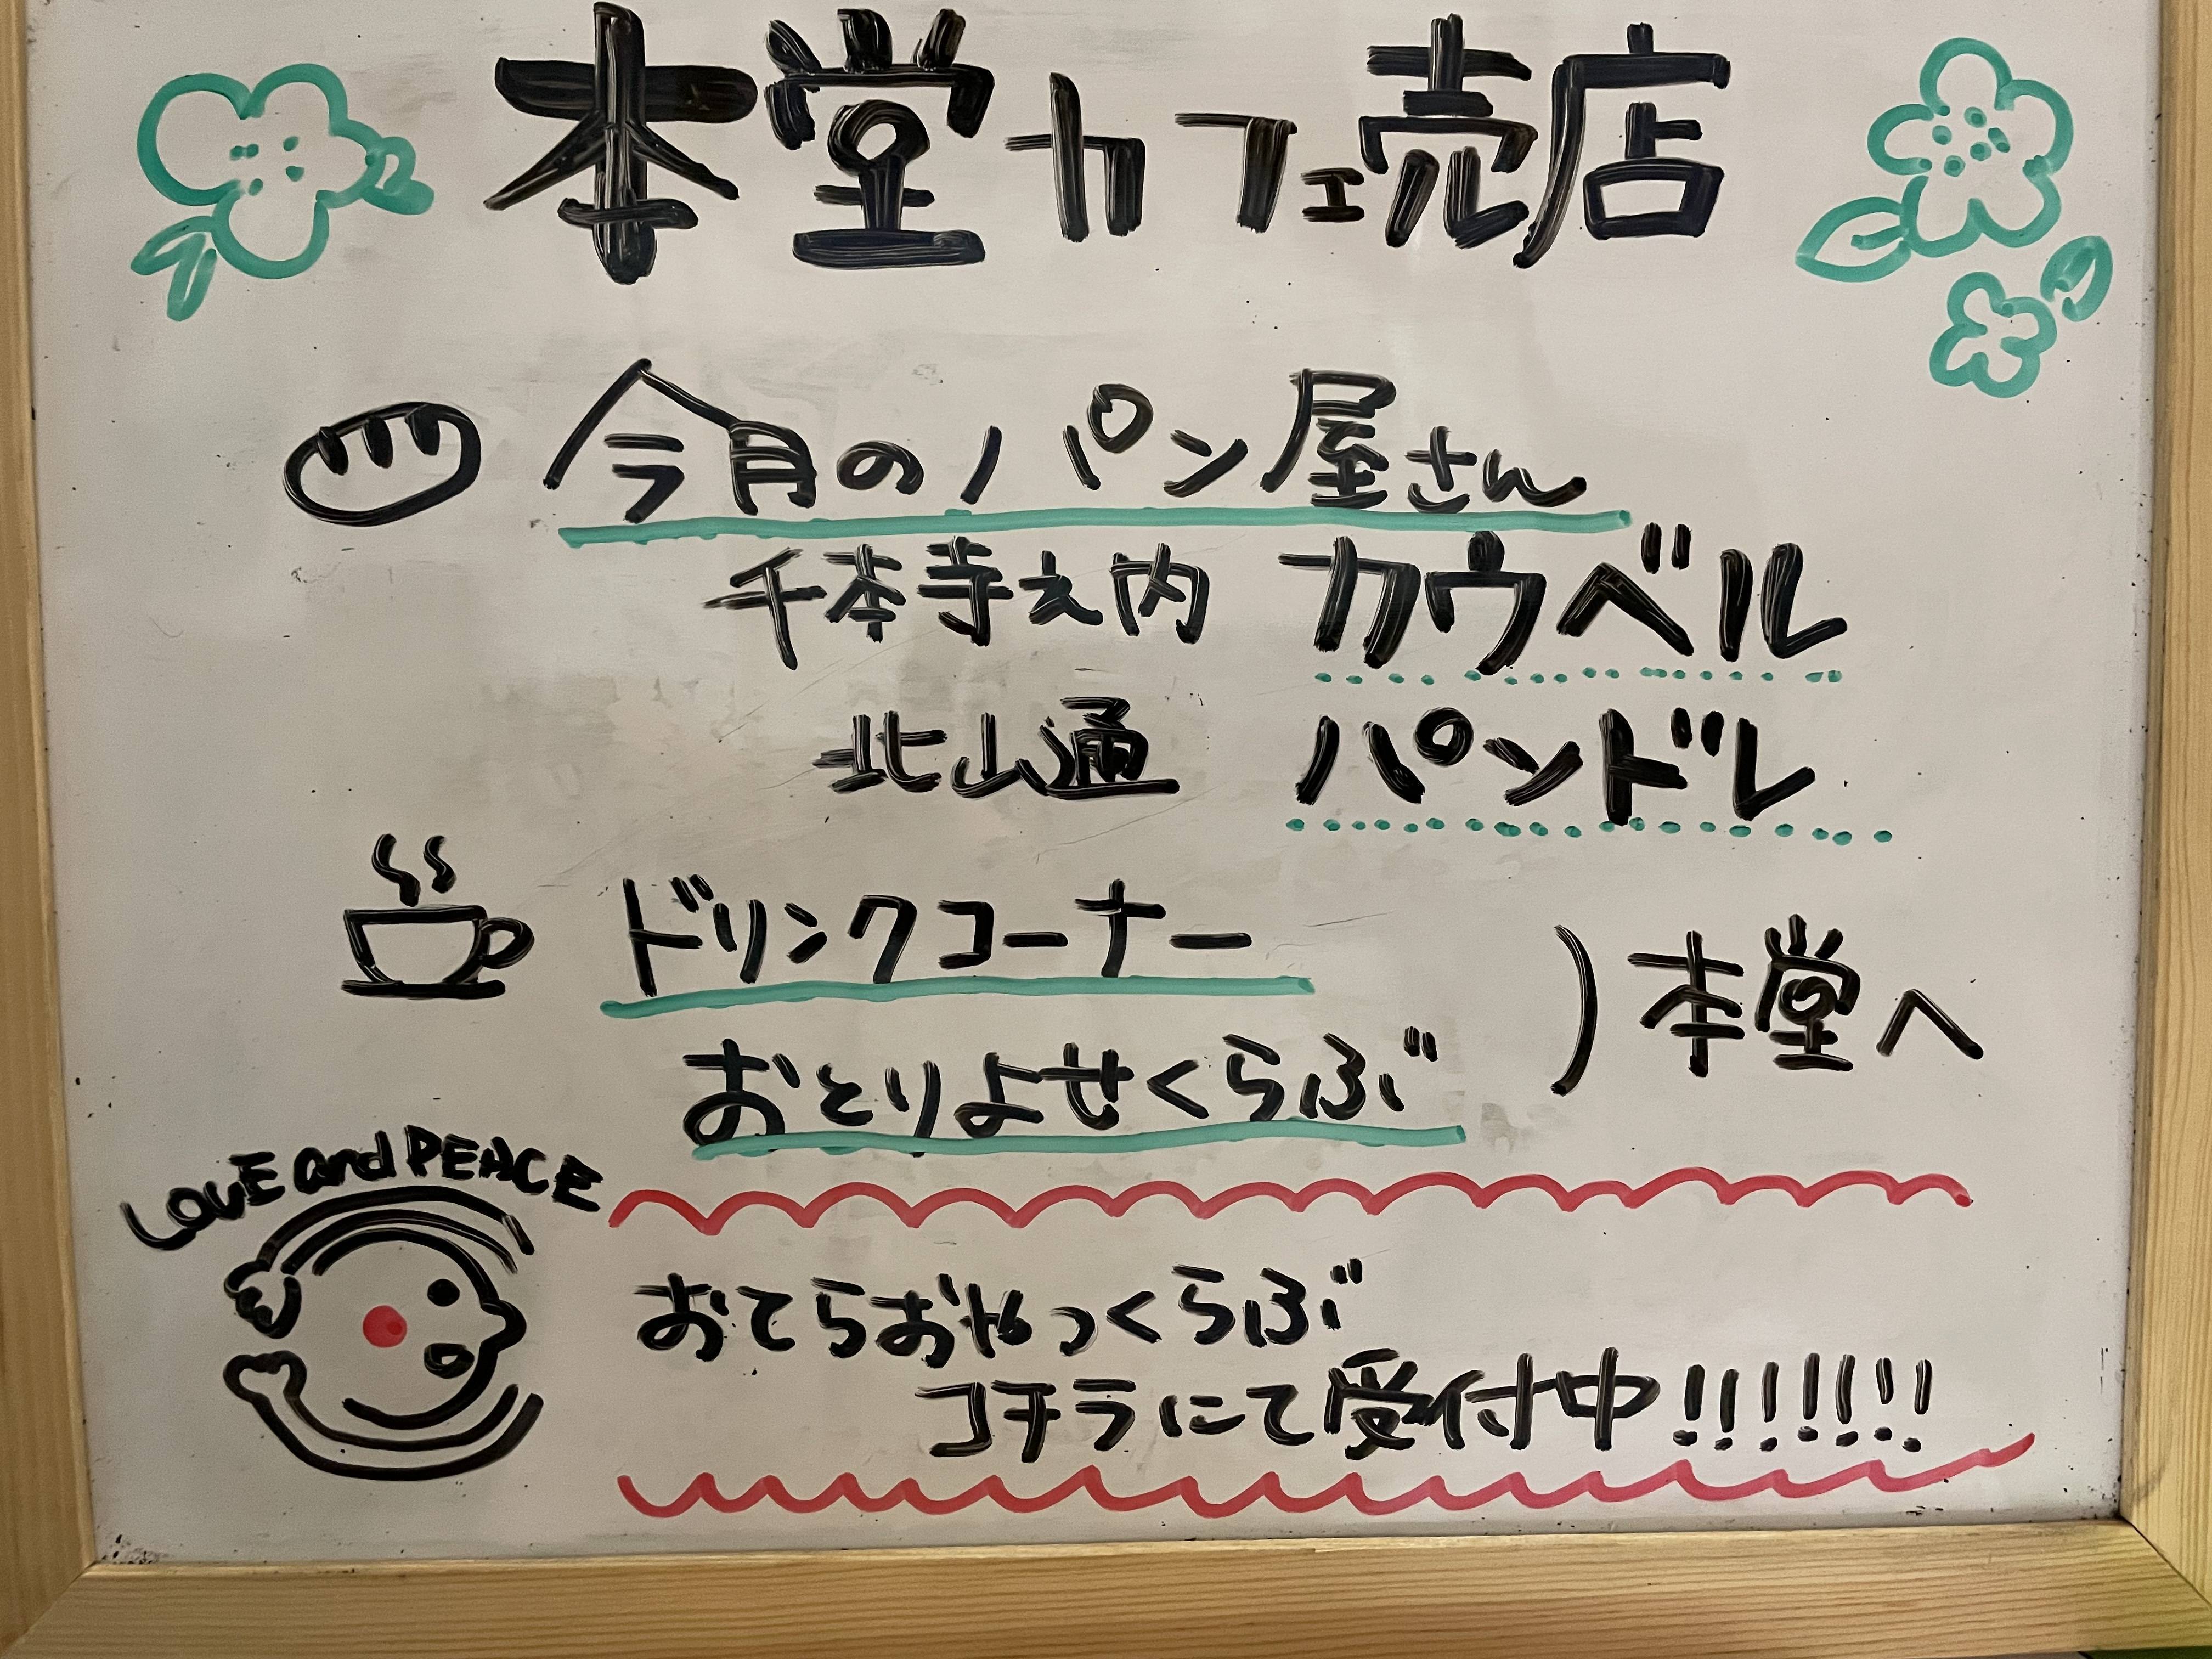 本堂カフェ売店
今月のパン屋さん
千本寺之内 カウベル
北山通 パンドレ
ドリンクコーナー
おとりよせくらぶ
)本堂へ
LOVE and PEACE
おてらおやつくらぶ
コチラにて受付中!!!!!!!